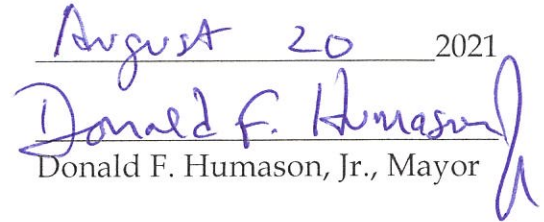 August 20 2021
Donald F. Humason Jr
Donald F. Humason, Jr., Mayor